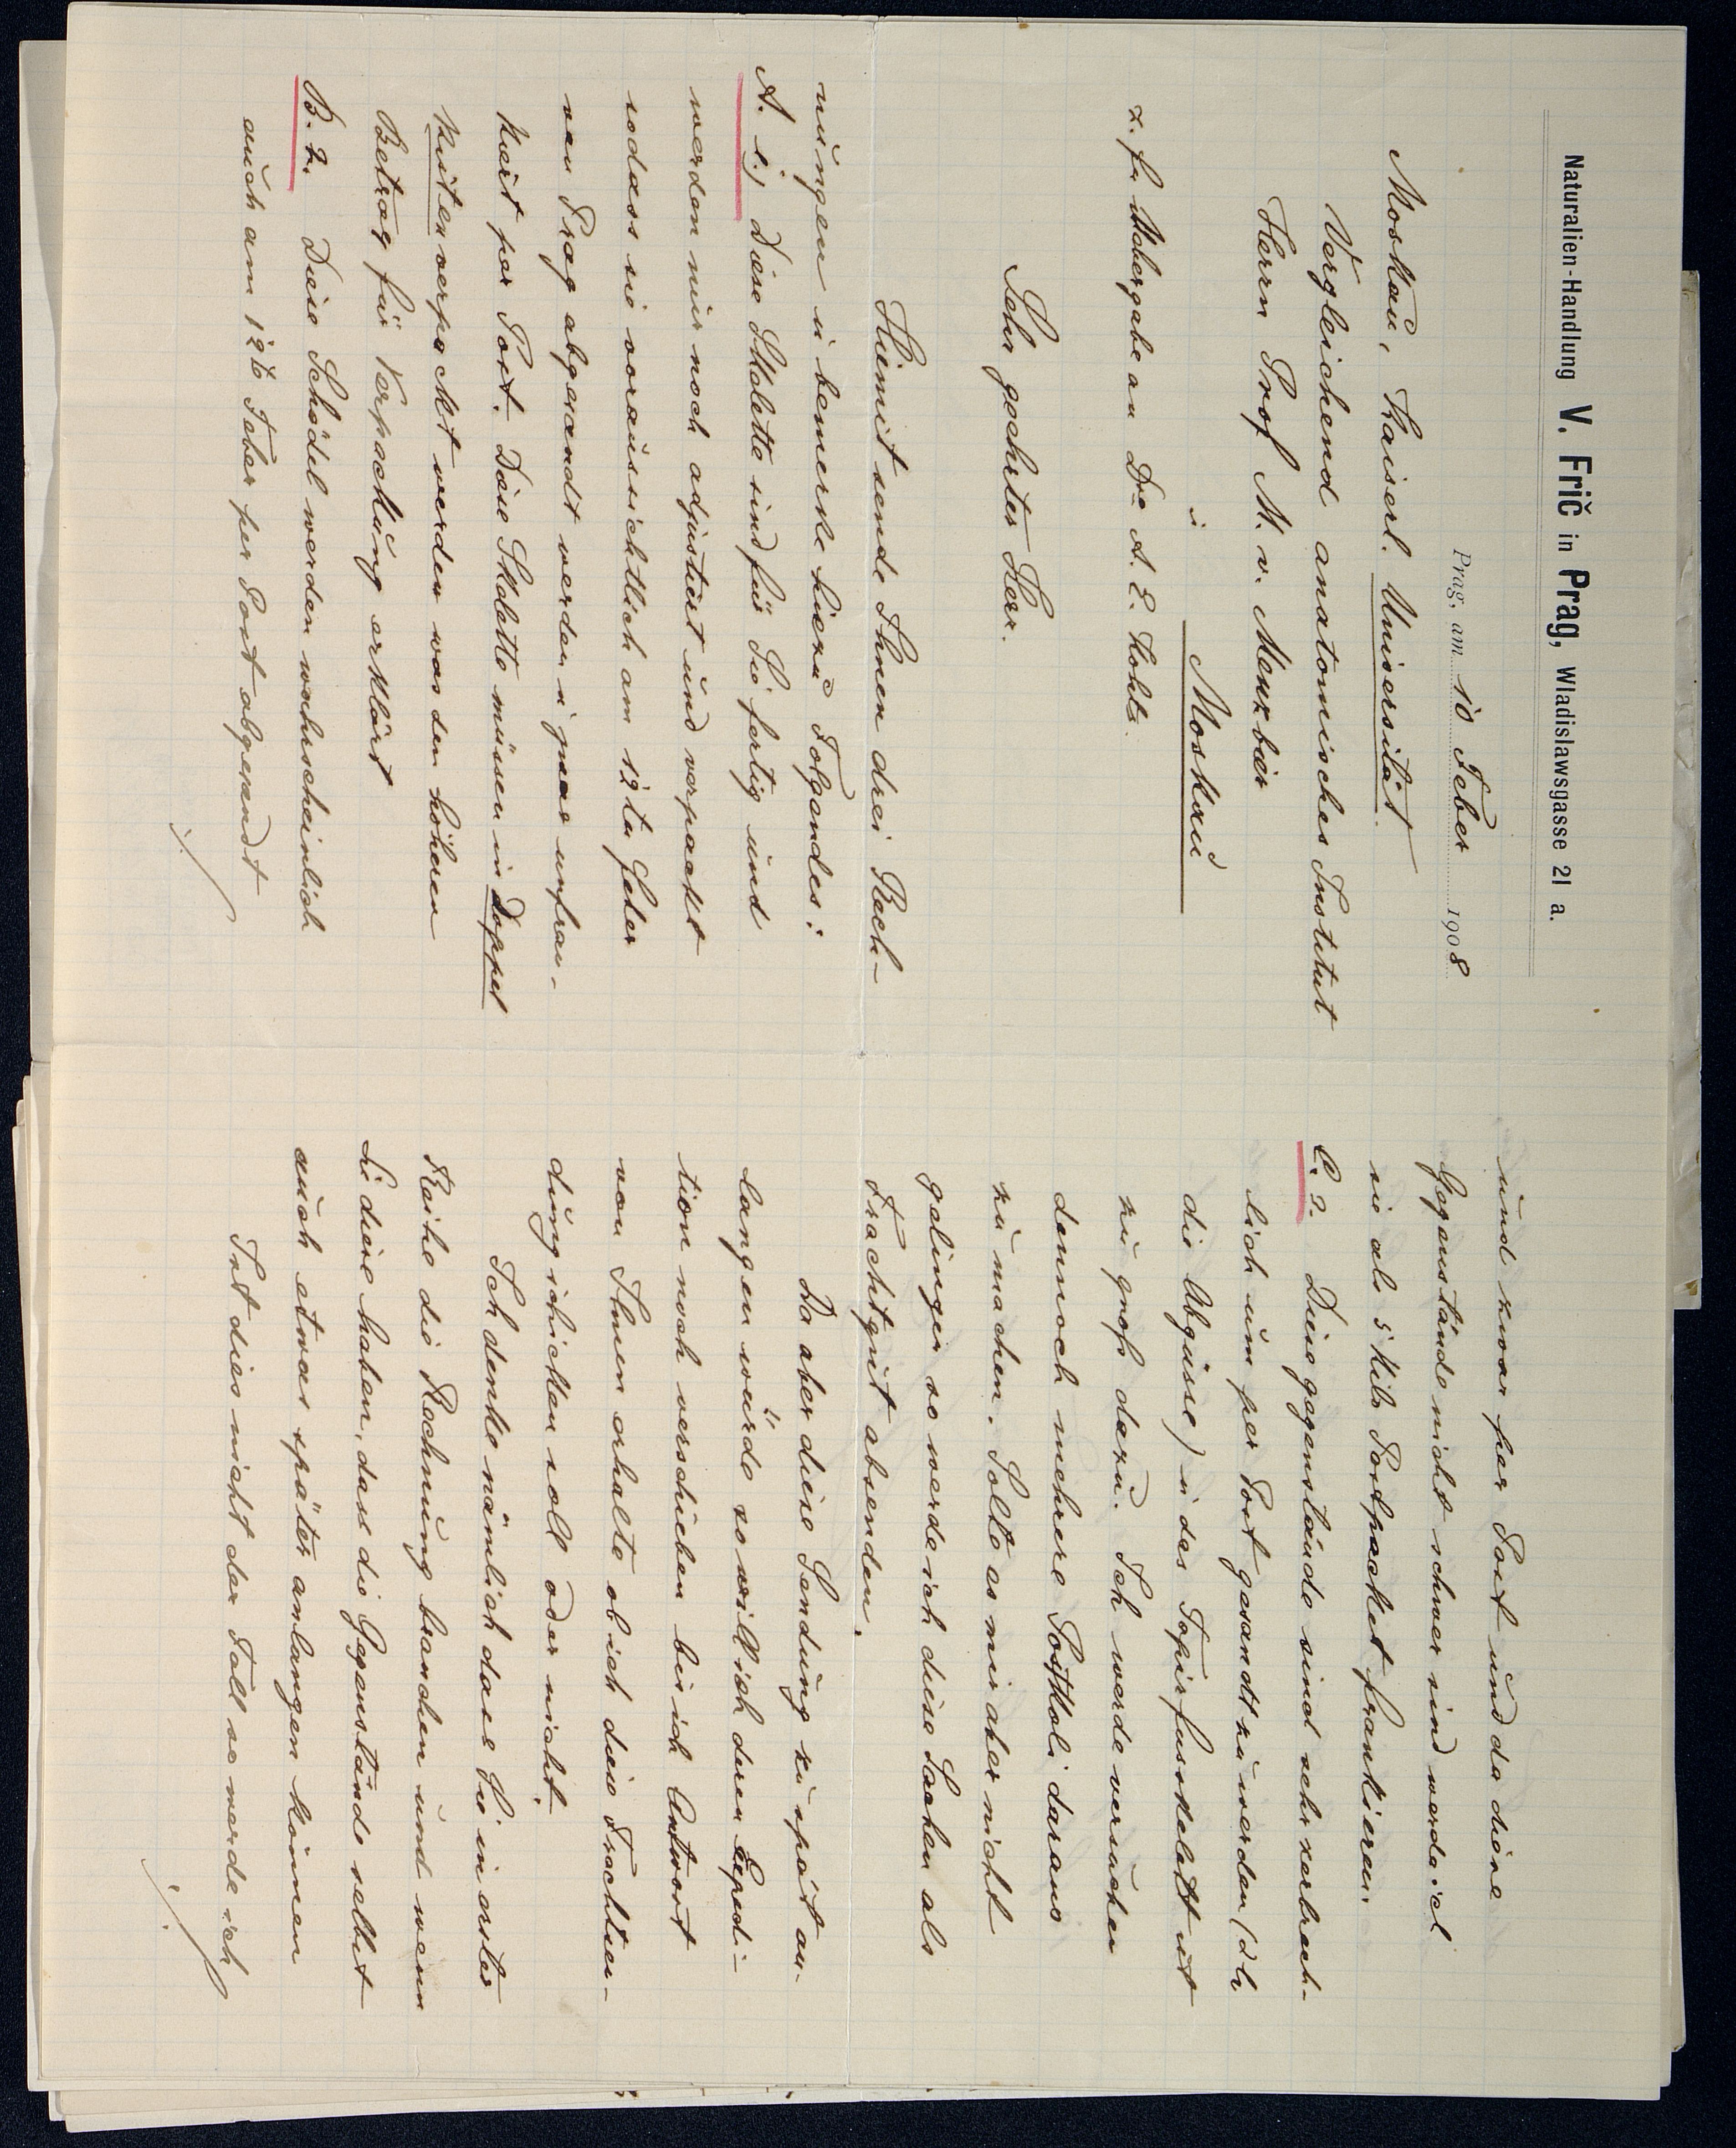 Naturalien-Handlung V. Frič in Prag, Wladislawsgasse 21 a.
Prag, am 10 Feber 1908
Moskau, Kaiserl. Universität
Vergleichend anatomisches Institut
Herrn Prof M. v. Menzbier
in
Moskau
z. f. Uebergabe an Dr. A. E. Kohts.
Sehr geehrter Herr.
Hiemit sende Ihnen drei Rech-
nungen u bemerke hiezu Folgendes:
A. 1.) Diese Skelette sind für Sie fertig und
werden nur noch adjustiert und verpackt
sodass sie voraussichtlich am 12ten Feber
von Prag abgesandt werden u zwar unfran-
kiert per Post. Diese Skelette müssen in Doppel
kisten verpackt werden was den höheren
Betrag für Verpackung erklärt
B. 2. Diese Schädel werden wahrscheinlich
auch am 12tb Feber per Post abgesandt
./.
und zwar per Post und da diese
Gegenstände nicht schwer sind werde ich
sie als 5 Kilo Postpacket frankieren.
C. 3. Diese gegenstände sind sehr zerbrech-
lich um per Post gesandt zu werden (d h
die Abgüsse) u das Tapirfusskelett ist
zu groß dazu. Ich werde versuchen
dennoch mehrere Postkoli daraus
zu machen. Sollte es mir aber nicht
gelingen so werde ich diese Sachen als
Frachtgut absenden.
Da aber diese Sendung zu spät an-
langen würde so will ich deren Expedi-
tion noch verschieben bis ich Antwort
von Ihnen erhalte ob ich diese Frachtsen-
dung schicken soll oder nicht.
Ich denke nämlich dass Sie in erster
Reihe die Rechnung brauchen und wenn
Sie diese haben, dass die Gegenstände selbst
auch etwas später anlangen können
Ist dies nicht der Fall so werde ich
./.